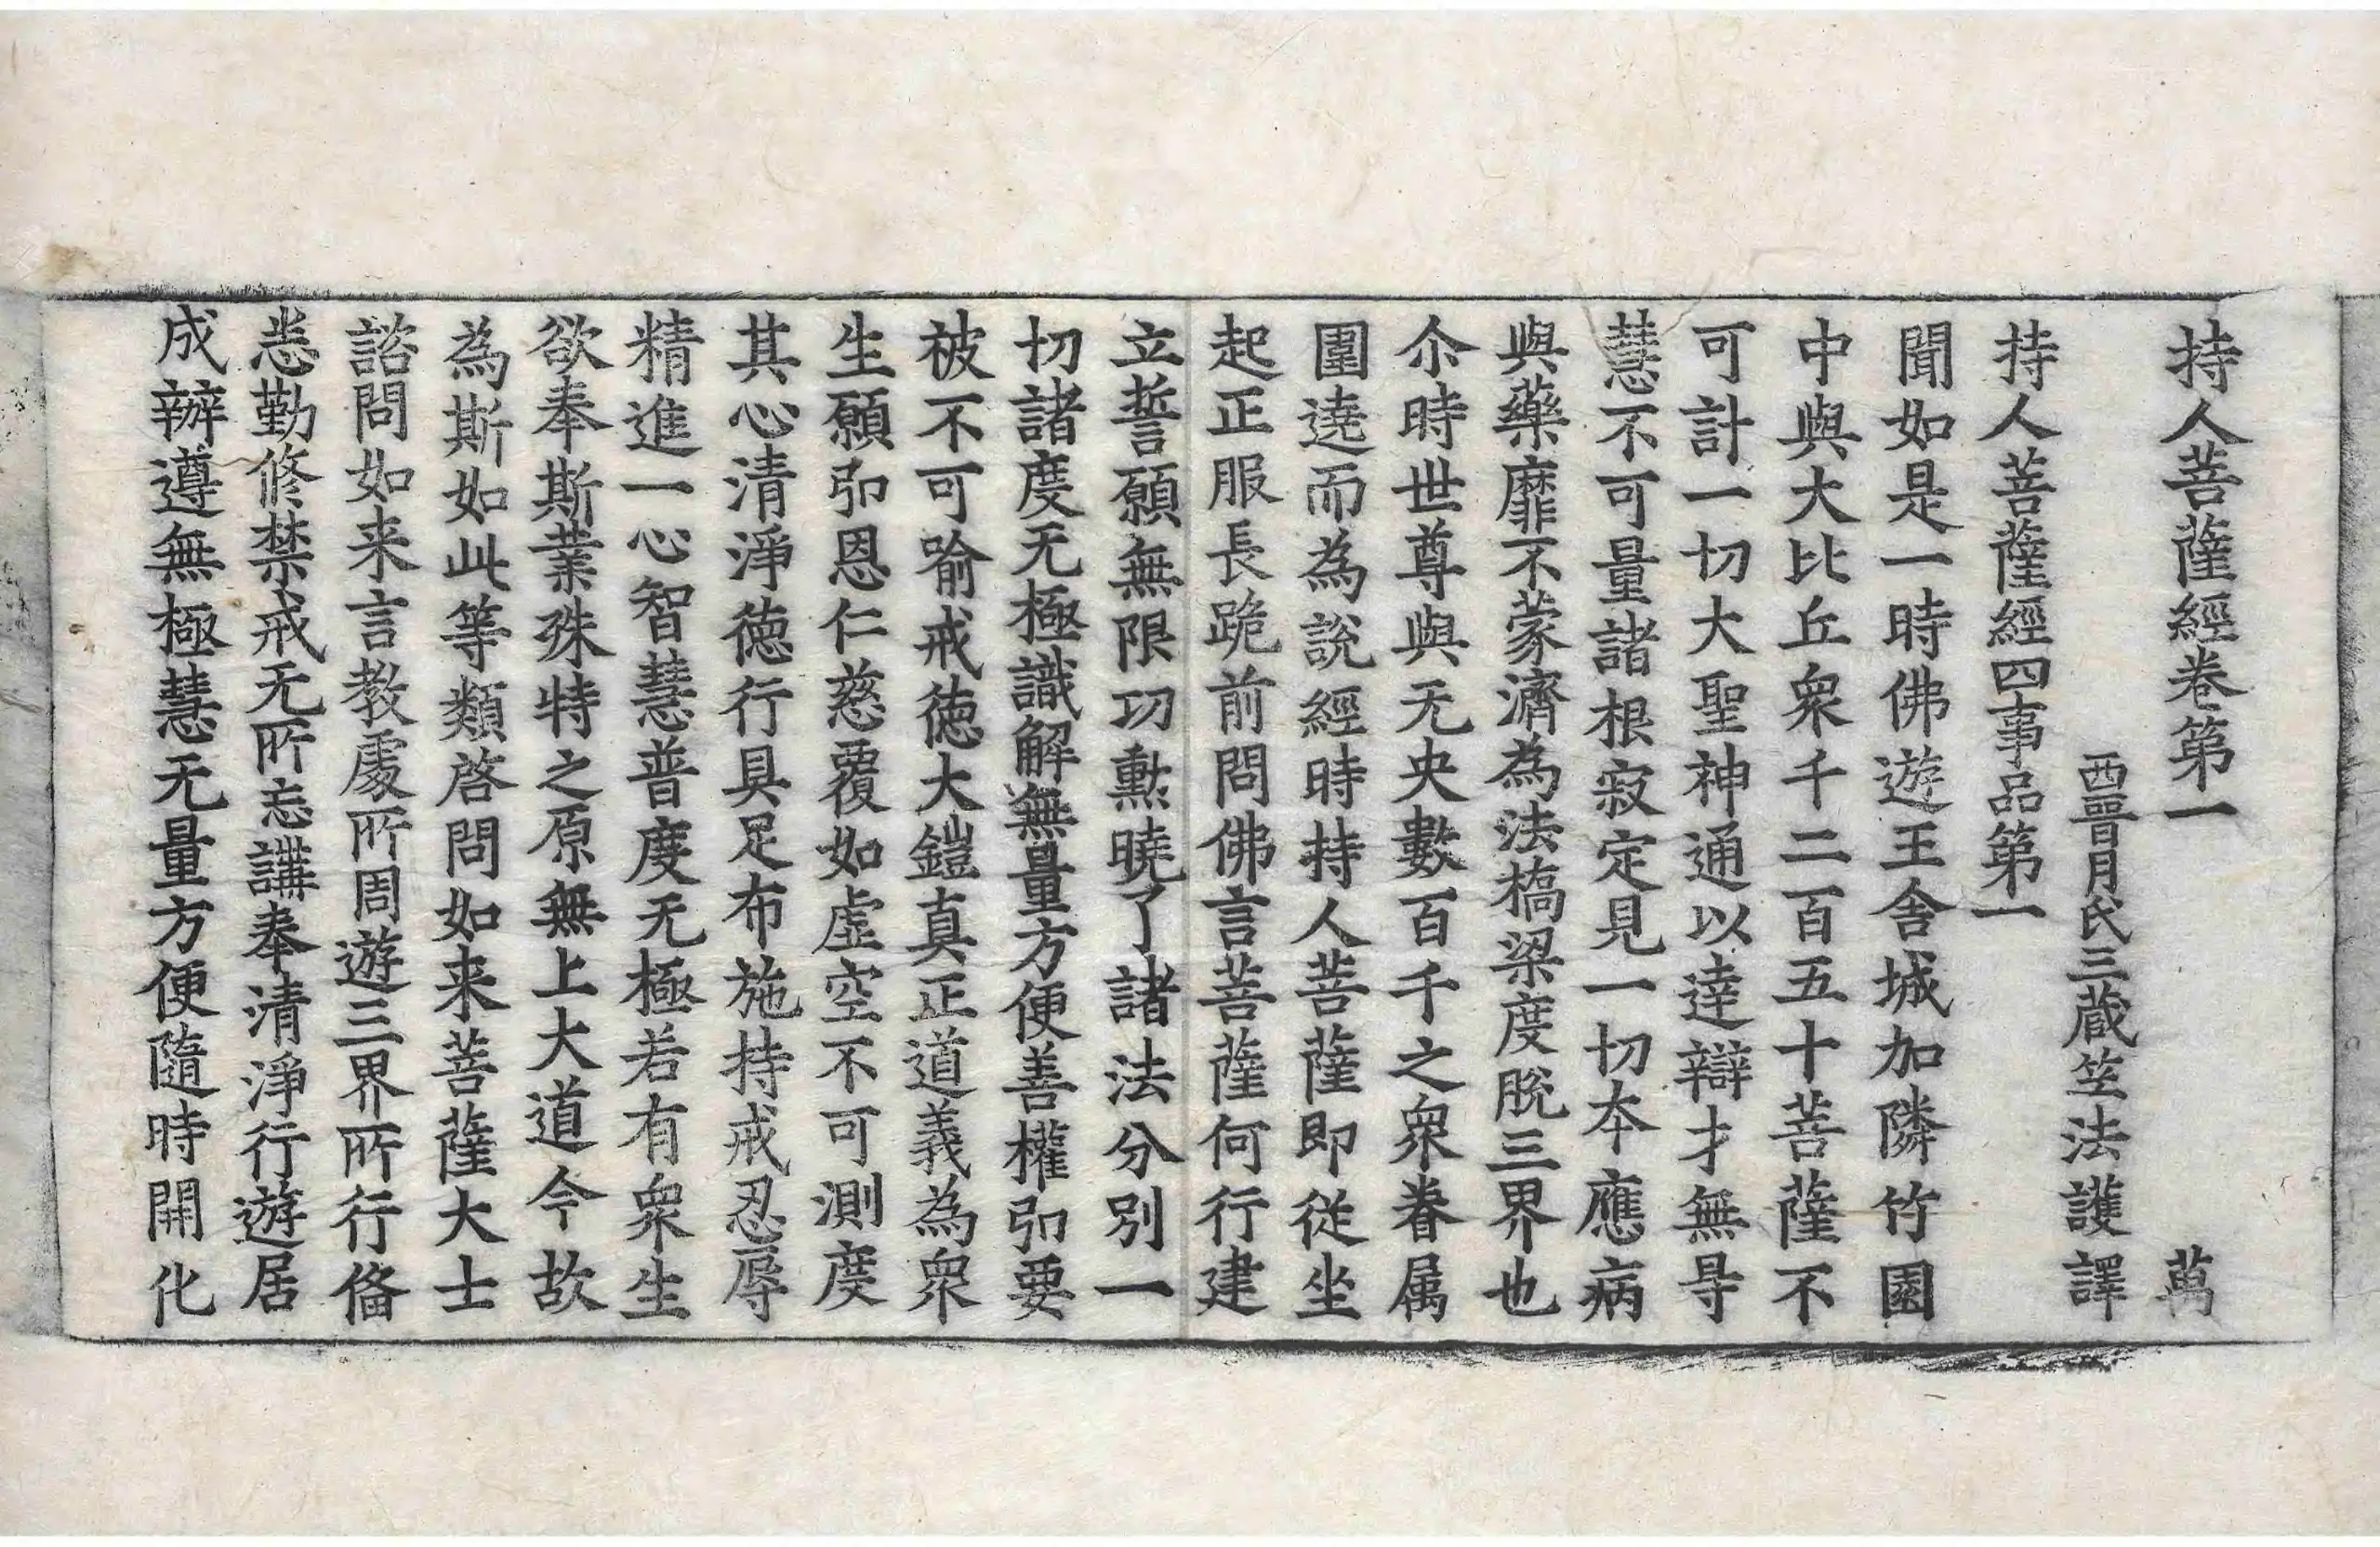 持人菩薩經卷第一　萬
西晉月氏三藏笁法護譯
持人菩薩經四事品第一
聞如是一時佛遊王舍城加隣竹園
中與大比丘衆千二百五十菩薩不
可計一切大聖神通以達辯才無㝵
慧不可量諸根寂定見一切本應病
與藥靡不蒙濟為法橋梁度脫三界也
尒時世尊與无央數百千之衆眷属
圍遶而為說經時持人菩薩即從坐
起正服長跪前問佛言菩薩何行建
立誓願無限功勲曉了諸法分別一
切諸度无極識解無量方便善權弘要
被不可喻戒徳大鎧真正道義為衆
生願弘恩仁慈覆如虛空不可測度
其心清淨徳行具足布施持戒忍辱
精進一心智慧普度无極若有衆生
欲奉斯業殊特之原無上大道今故
為斯如此等類啓問如来菩薩大士
諮問如来言教處所周遊三界所行俻
悉勤修禁戒无所忘講奉清淨行遊居
成辦遵無極慧无量方便隨時開化